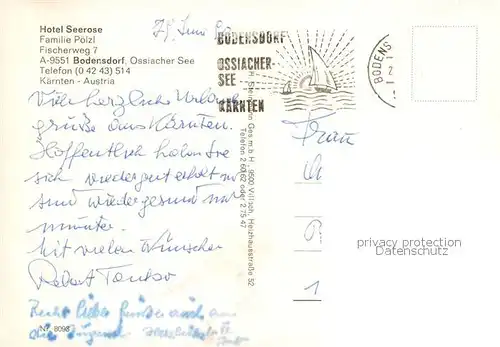 Hotel Seerose
Familie Pölzl
Fischerweg 7
A-9551 Bodensdorf, Ossiacher See
Telefon (0 42 43) 514
Kärnten - Austria
BODENSDORF
OSSIACHER-
SEE
KÄRNTEN
BODENS
Viele herzliche Urlaubs
grüße aus Kärnten.
Hoffentlich haben Sie
sich wieder gut erholt
und sind wieder gesund und
munter.
Mit vielen Wünschen
Robert
Recht liebe Grüße auch an
die Jugend
Frau
Ges.m.b.H., 9500 Villach, Heizhausstraße 52
Telefon 2 60 62 oder 2 75 47
privacy protection
Datenschutz
Nr. 8098